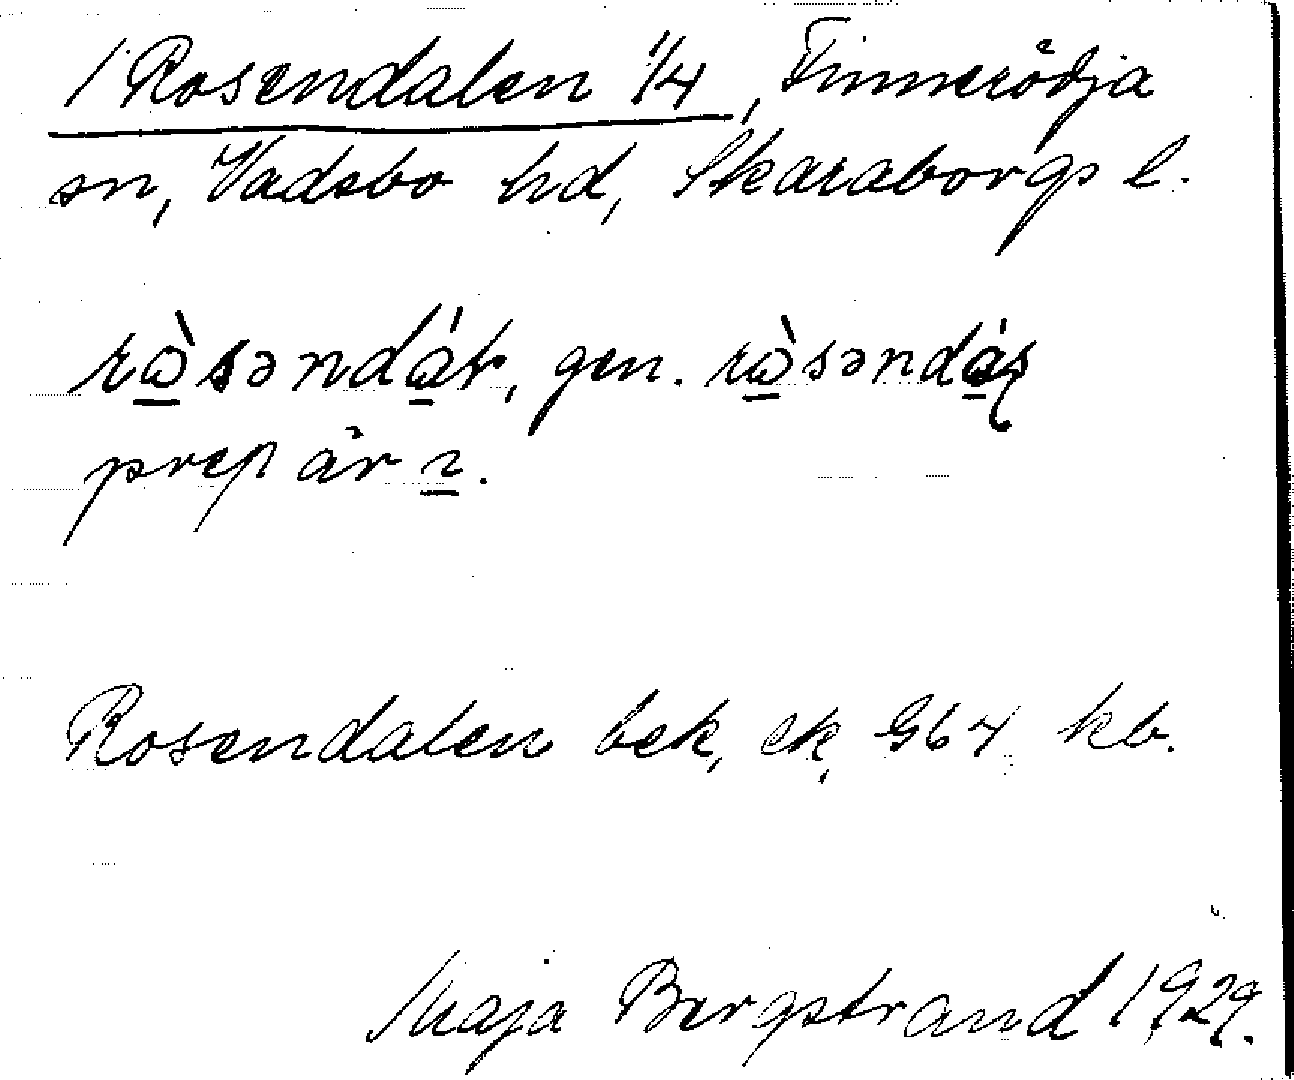 1 Rosendalen 1/4, Finnerödja
sn, Vadsbo hd, Skaraborgs l.
rɷ̀səndáɽ, gen. rɷ̀səndáʂ
prep är ɩ.
Rosendalen bek, ek, G64 kb.
Maja Bergstrand 1929.